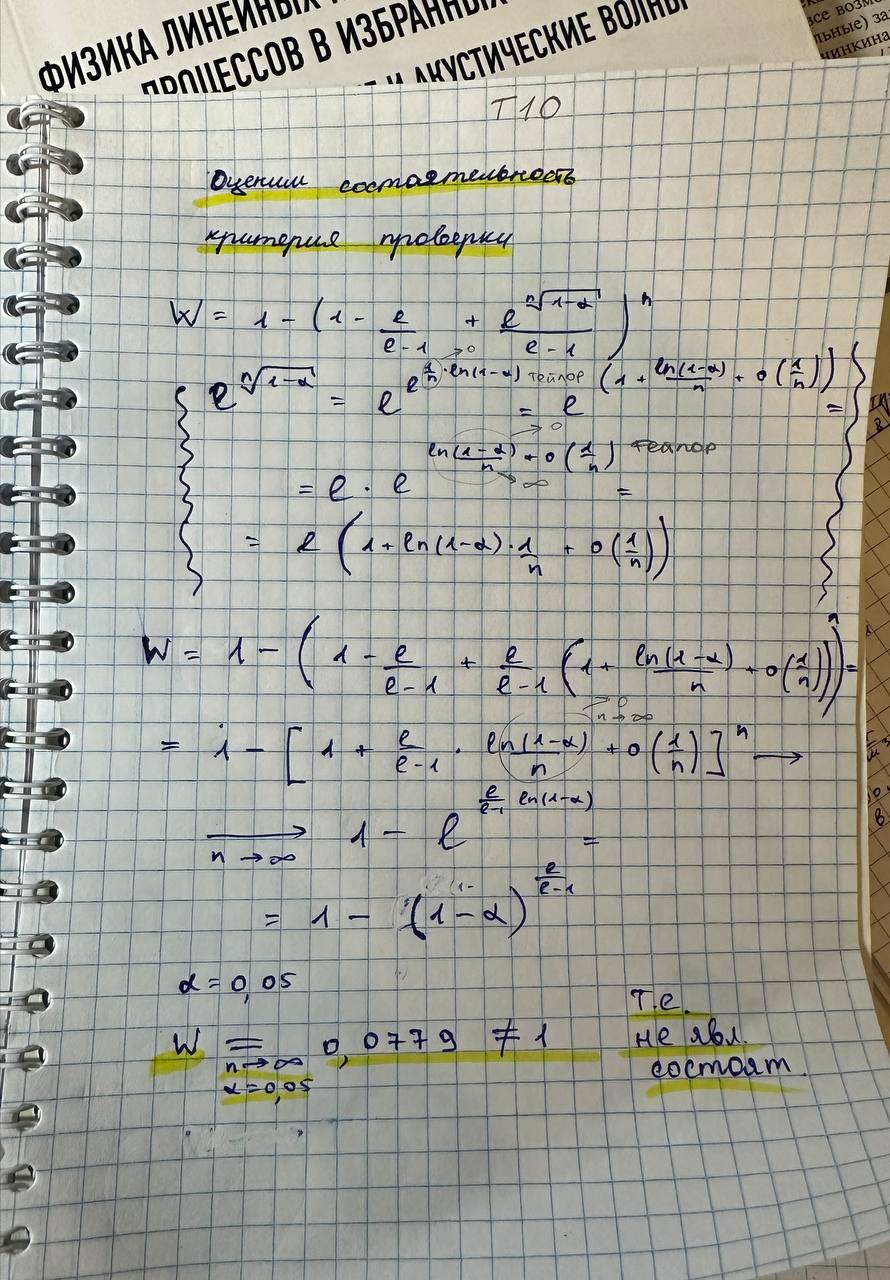 ФИЗИКА ЛИНЕЙНЫХ
ПРОЦЕССОВ В ИЗБРАННЫХ
И АКУСТИЧЕСКИЕ ВОЛНЫ
все возмо
льные) за
чинкина
T10
Оценим состоятельность
критерия проверки
W = 1 - (1 - e/(e-1) + e^(ⁿ√(1-α))/(e-1))^n
e^(ⁿ√(1-α)) = e^(e^(1/n · ln(1-α))) →0 тейлор = e^(1 + ln(1-α)/n + o(1/n)) =
= e · e^(ln(1-α)/n + o(1/n)) →0 →∞ тейлор =
= e (1 + ln(1-α) · 1/n + o(1/n))
W = 1 - (1 - e/(e-1) + e/(e-1) (1 + ln(1-α)/n + o(1/n)))^n =
= 1 - [1 + e/(e-1) · ln(1-α)/n + o(1/n)]^n → →0 n→∞
→ n→∞ 1 - e^(e/(e-1) ln(1-α)) =
= 1 - (1-α)^(e/(e-1))
α = 0,05
W = 0,0779 ≠ 1 т.е. не явл. состоят.
n→∞
α=0,05